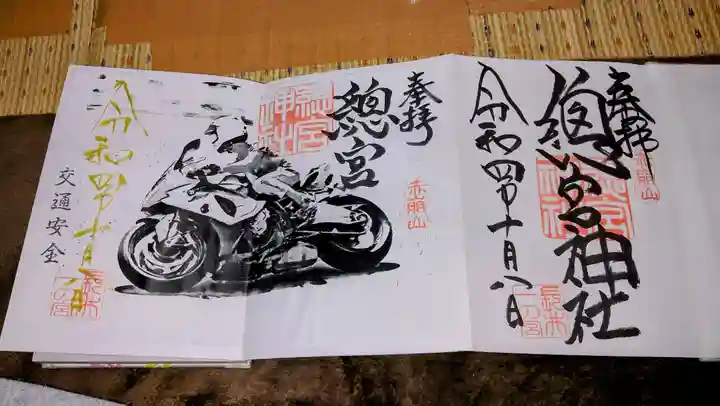 奉拝
赤崩山
總宮神社
長井
一の宮
令和四年十月八日
奉拝
赤崩山
總宮
總宮
神社
交通安全
令和四年十月八日
長井
一の宮